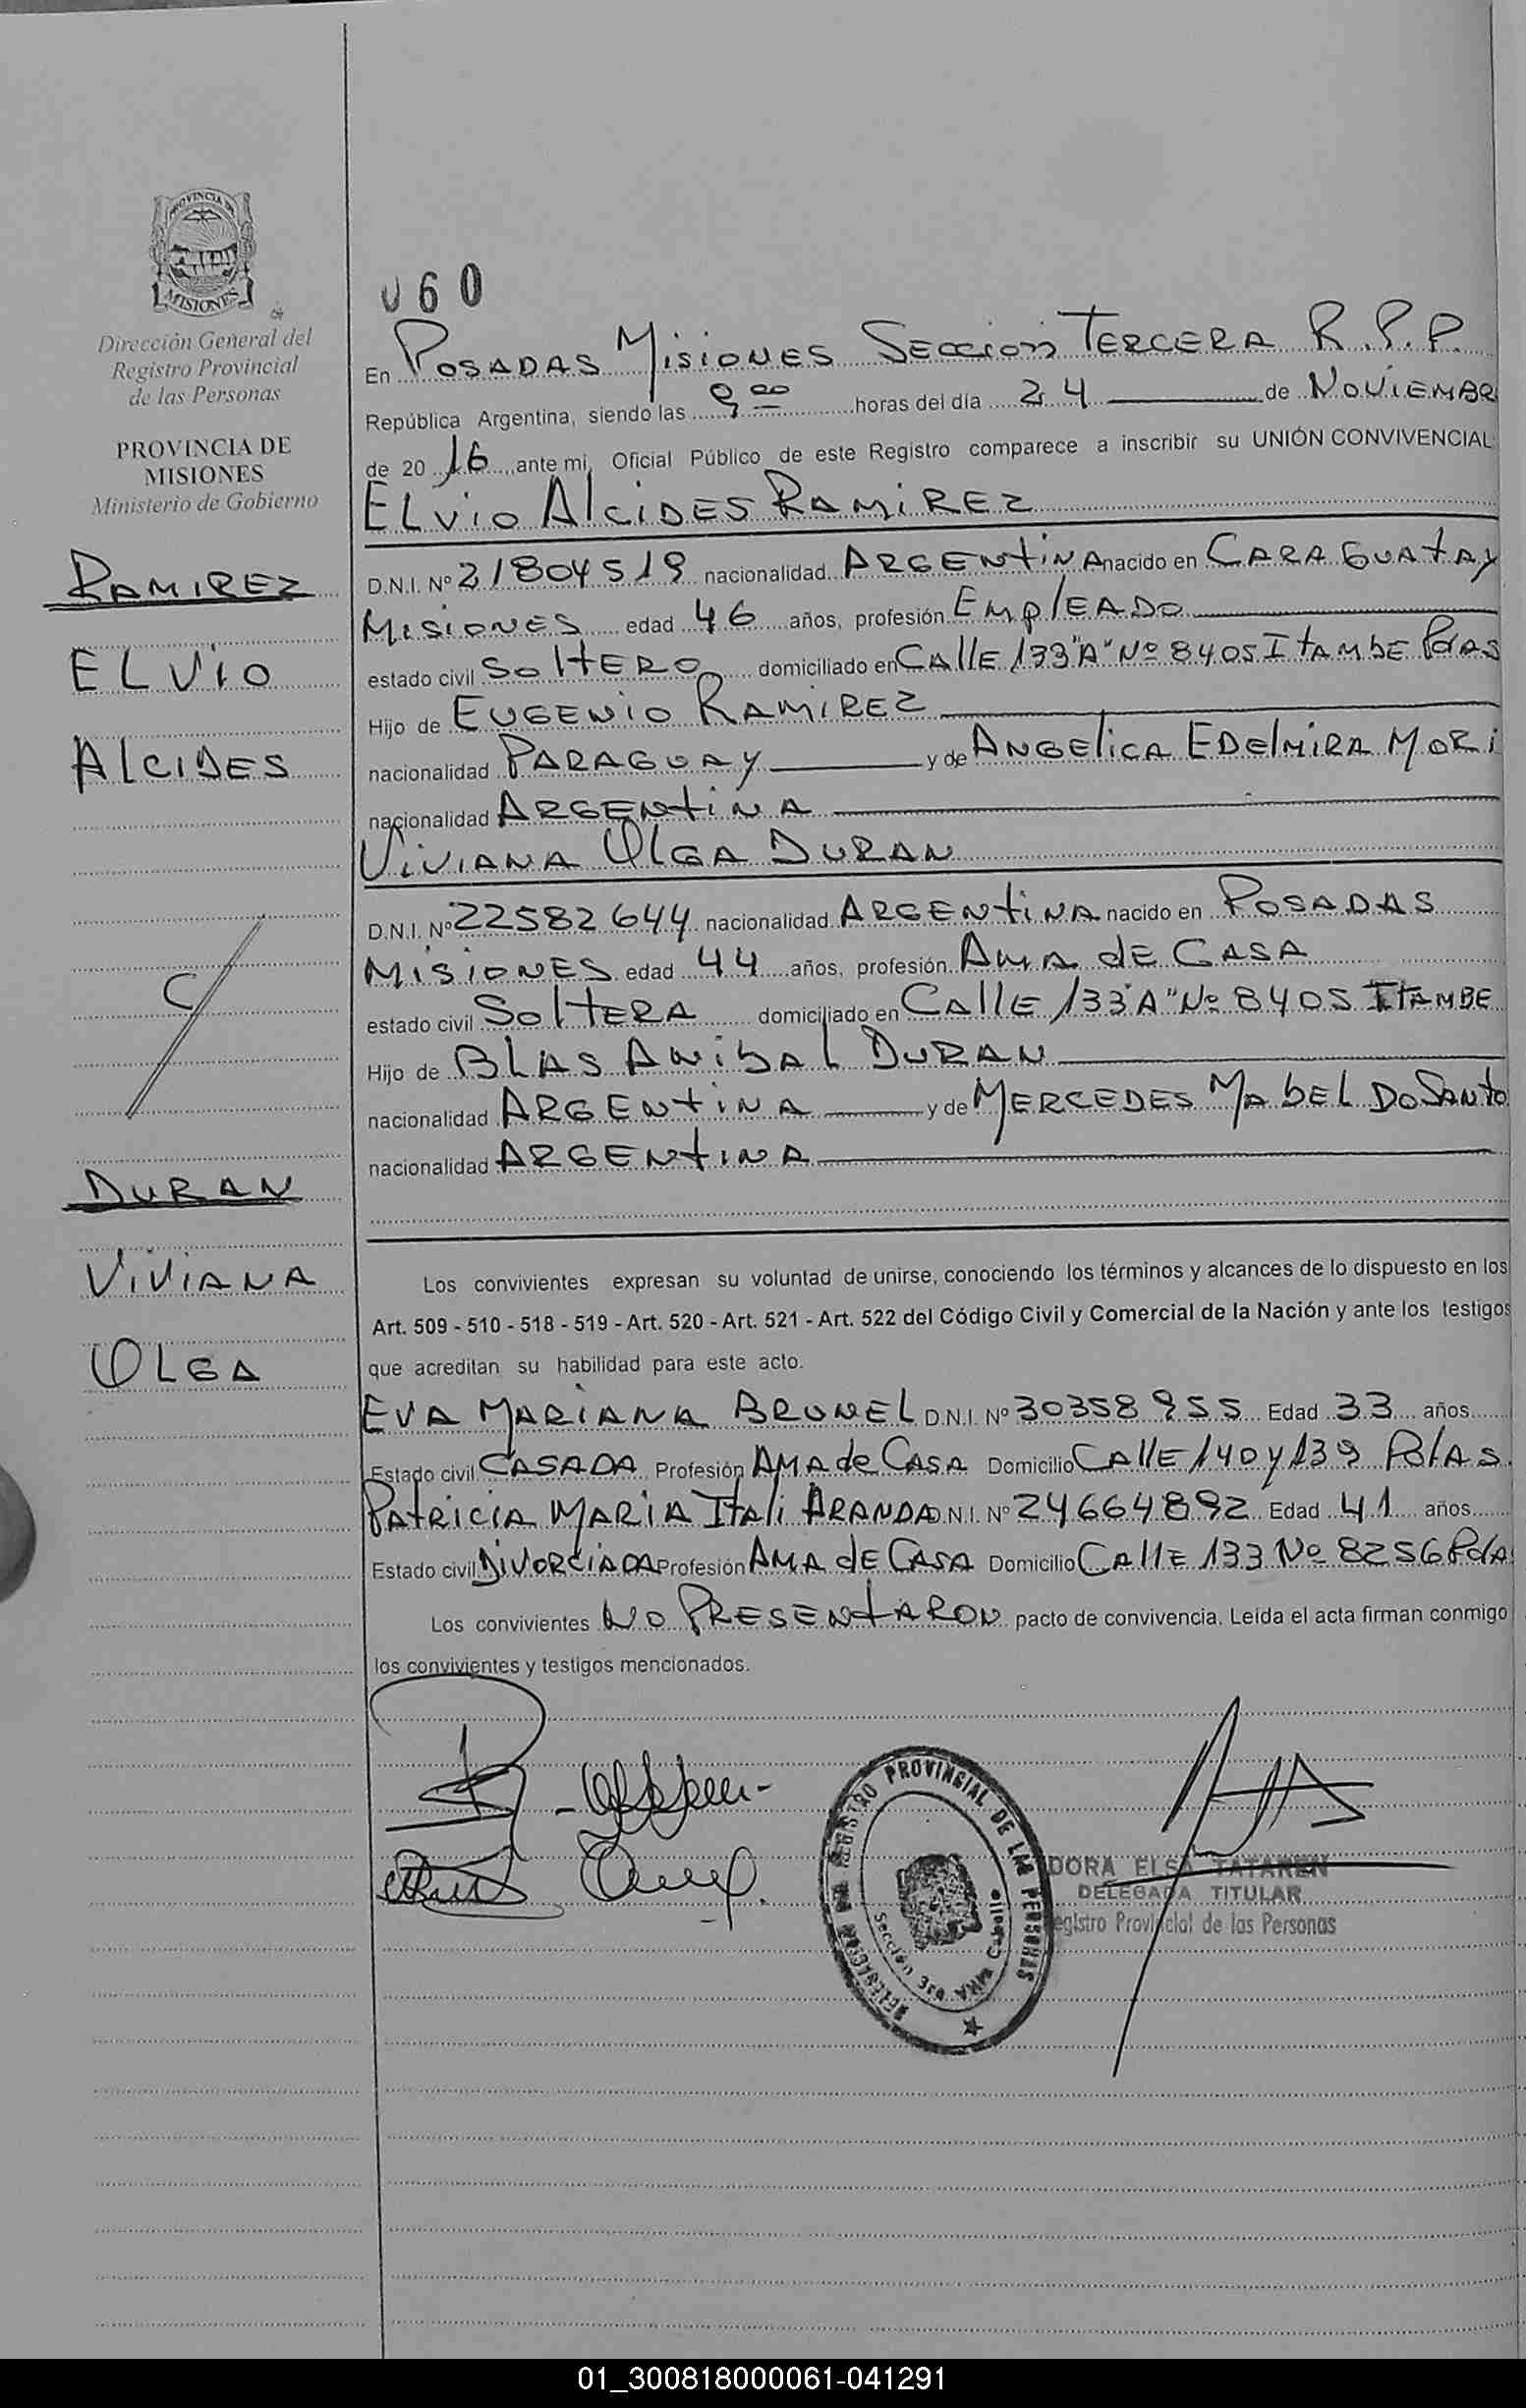 PROVINCIA DE
MISIONES
Dirección General del
Registro Provincial
de las Personas
PROVINCIA DE
MISIONES
Ministerio de Gobierno
RAMIREZ
ELVIO
ALCIDES
C/
DURAN
VIVIANA
OLGA
060
En POSADAS MISIONES SECCION TERCERA R.P.P.
República Argentina, siendo las 9 00 horas del día 24 de NOVIEMBR
de 20 16 ante mi, Oficial Público de este Registro comparece a inscribir su UNIÓN CONVIVENCIAL
ELVIO ALCIDES RAMIREZ
D.N.I. Nº 21804519 nacionalidad ARGENTINA nacido en CARAGUATAY
MISIONES edad 46 años, profesión EMPLEADO
estado civil SOLTERO domiciliado en CALLE 133 "A" Nº 8405 ITAMBE Pdas
Hijo de EUGENIO RAMIREZ
nacionalidad PARAGUAY y de ANGELICA EDELMIRA MORI
nacionalidad ARGENTINA
VIVIANA OLGA DURAN
D.N.I. Nº 22582644 nacionalidad ARGENTINA nacido en POSADAS
MISIONES edad 44 años, profesión AMA DE CASA
estado civil SOLTERA domiciliado en CALLE 133 "A" Nº 8405 ITAMBE
Hijo de BLAS ANIBAL DURAN
nacionalidad ARGENTINA y de MERCEDES MABEL DOSANTO
nacionalidad ARGENTINA
Los convivientes expresan su voluntad de unirse, conociendo los términos y alcances de lo dispuesto en los
Art. 509 - 510 - 518 - 519 - Art. 520 - Art. 521 - Art. 522 del Código Civil y Comercial de la Nación y ante los testigos
que acreditan su habilidad para este acto.
EVA MARIANA BRUNEL D.N.I. Nº 30358955 Edad 33 años
Estado civil CASADA Profesión AMA de CASA Domicilio CALLE 140 y 139 PdAS.
PATRICIA MARIA ITATI ARANDA D.N.I. Nº 24664892 Edad 41 años
Estado civil DIVORCIADA Profesión AMA dE CASA Domicilio CALLE 133 Nº 8256 PdA
Los convivientes NO PRESENTARON pacto de convivencia. Leída el acta firman conmigo
los convivientes y testigos mencionados.
REGISTRO PROVINCIAL DE LAS PERSONAS
Sección 3ra
DORA ELSA TATAREN
DELEGADA TITULAR
egistro Provincial de las Personas
01_300818000061-041291